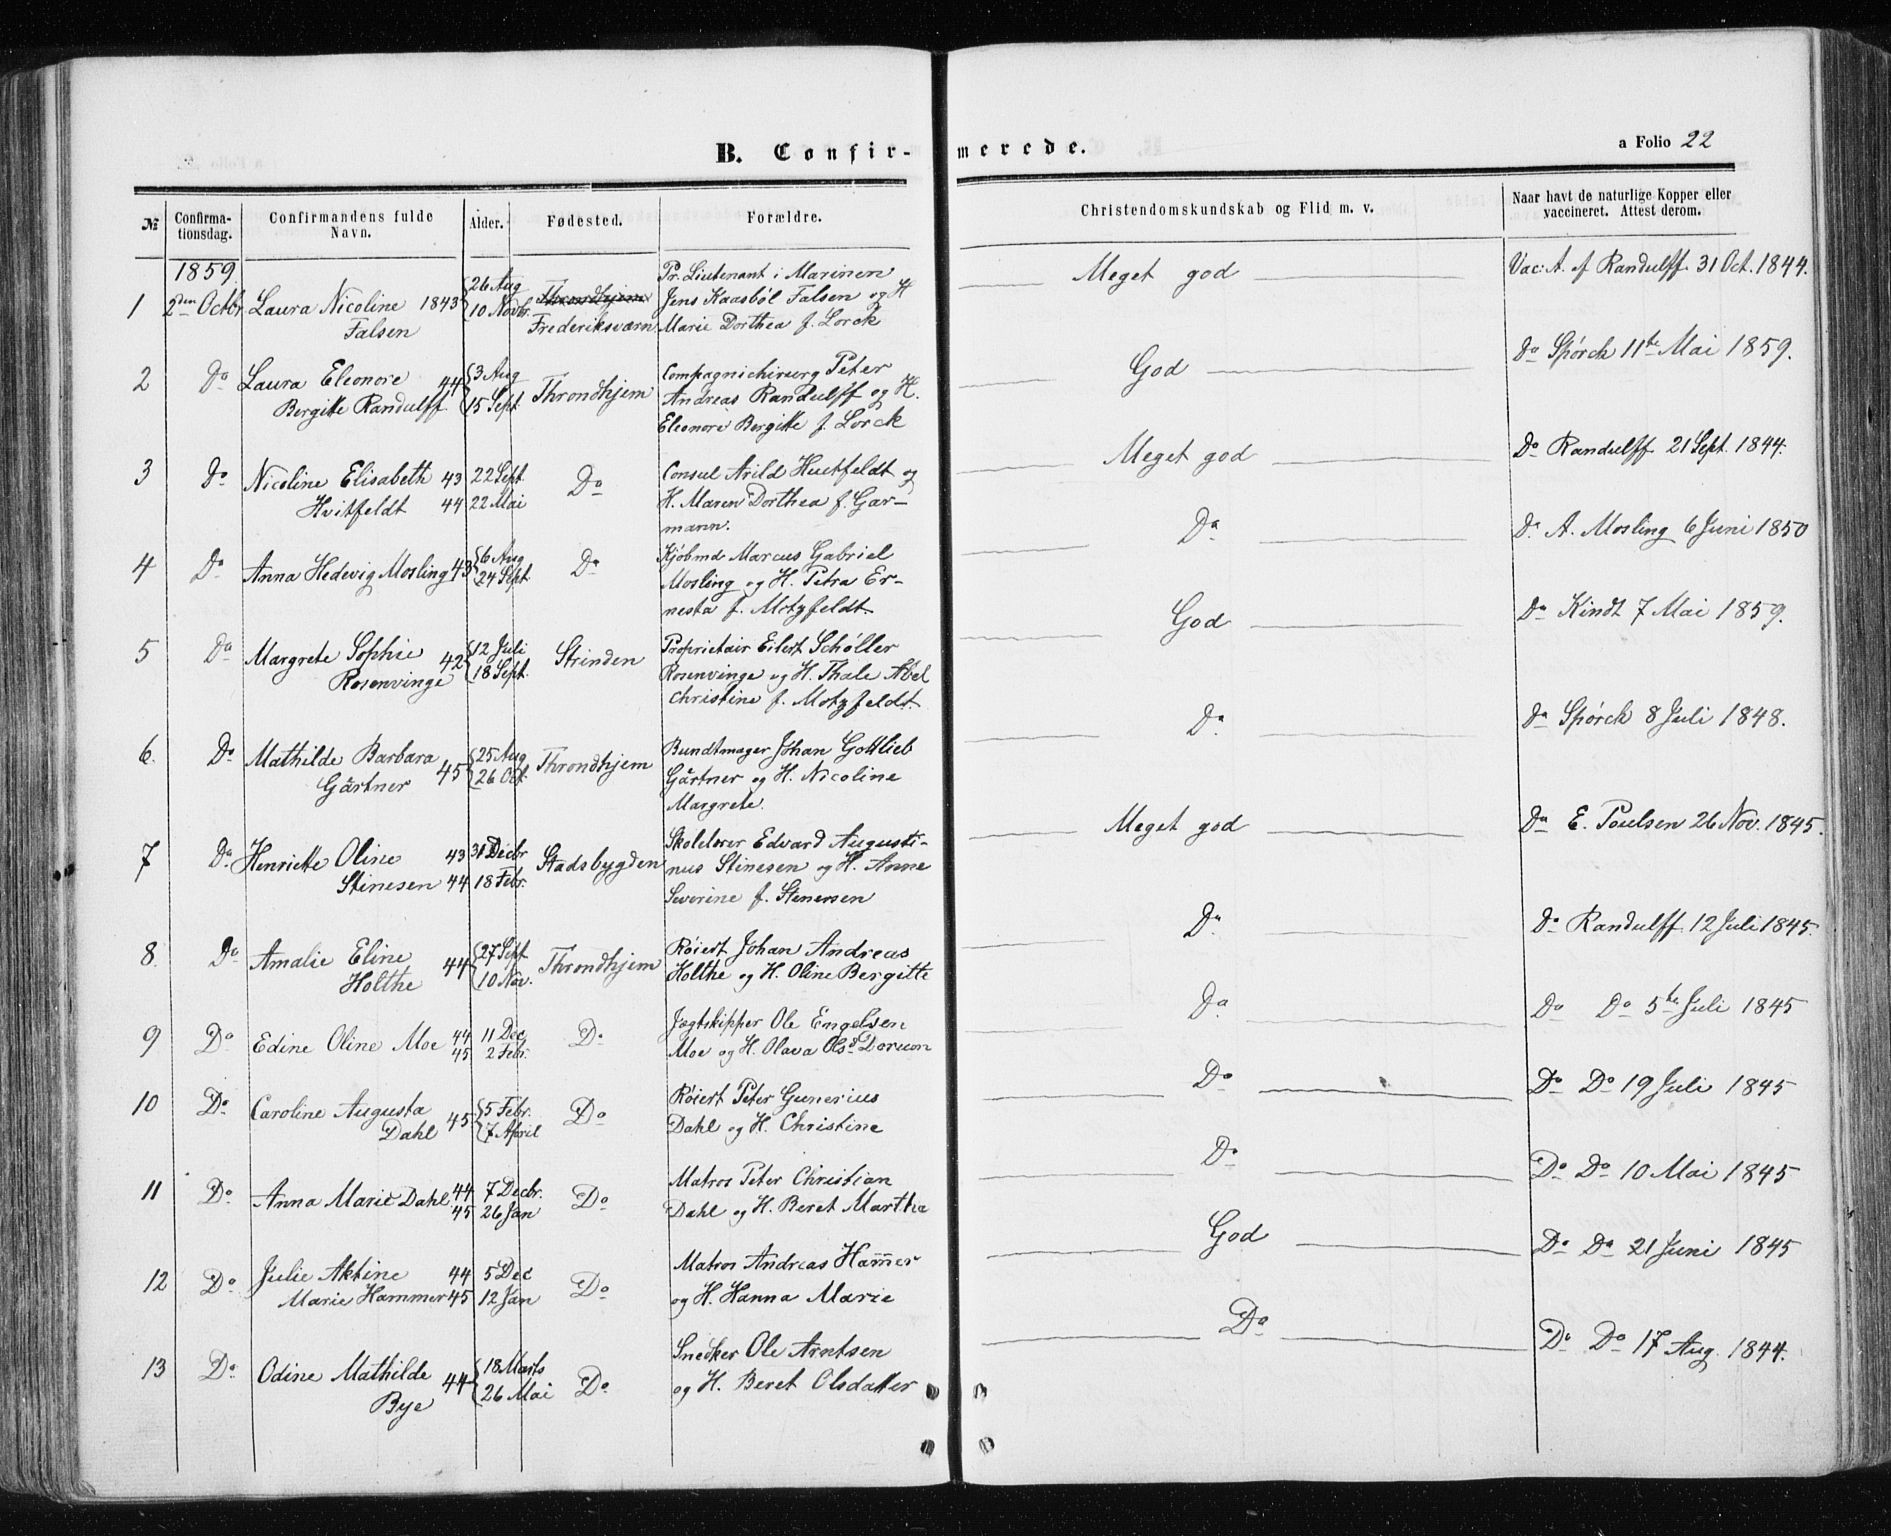 B. Confir-
merede.
a Folio 22
№
Confirma-
tionsdag.
Confirmandens fulde
Navn.
Alder.
Fødested.
Forældre.
Christendomskundskab og Flid m. v.
Naar havt de naturlige Kopper eller
vaccineret. Attest derom.
1859
1 2den Octbr Laura Nicoline 1843 26 Aug Throndhjem Pr. Lieutenant i Marinen Meget god Vac: A. af Randulff 31 Oct. 1844.
Falsen 10 Novbr. Frederiksværn Jens Kaasbøl Falsen og H
Marie Dorthea f. Lorck
2 Do Laura Eleonore 44 3 Aug Throndhjem Compagnichirurg Peter God Do Spørck 11te Mai 1859.
Bergitte Randulff 15 Sept. Andreas Randulff og H.
Eleonore Bergitte f. Lorck
3 Do Nicoline Elisabeth 43 22 Sept Do Consul Arild Huitfeldt og Meget god Do Randulff 21 Sept. 1844.
Hvitfeldt 44 22 Mai H. Maren Dorthea f. Gar-
mann.
4 Do Anna Hedevig Mosling 43 6 Aug Do Kjøbmd Marcus Gabriel Do Do A. Mosling 6 Juni 1850
24 Sept. Mosling og H. Petra Er-
nesta f. Motzfeldt.
5 Do Margrete Sophie 42 12 Juli Strinden Proprietair Eilert Schøller God Do Kindt 7 Mai 1859.
Rosenvinge 18 Sept. Rosenvinge og H. Thale Abel
Christine f. Motzfeldt.
6. Do Mathilde Barbara 45 25 Aug Throndhjem Bundtmager Johan Gottlieb Do Do Spørck 8 Juli 1848.
Gärtner 26 Oct. Gärtner og H. Nicoline
Margrete.
7 Do Henriette Oline 43 31 Decbr Stadsbygden Skolelærer Edvard Augusti- Meget god Do E. Poulsen 26 Nov. 1845.
Stinesen 44 18 Febr. nus Stinesen og H. Anne
Severine f. Stenersen
8. Do Amalie Eline 44 27 Sept Throndhjem Røiert Johan Andreas Do Do Randulff 12 Juli 1845.
Holthe 10 Nov. Holthe og H. Oline Bergitte
9 Do Edine Oline Moe 44 11 Dec Do Jægtskipper Ole Engelsen Do Do Do 5te Juli 1845
45 2 Febr. Moe og H. Olava Olsd
10 Do Caroline Augusta 45 5 Febr. Do Røiert Peter Gunerius Do Do Do 19 Juli 1845
Dahl 7 April Dahl og H. Christine
11 Do Anna Marie Dahl 44 7 Decbr. Do Matros Peter Christian Do Do Do 10 Mai 1845
45 26 Jan Dahl og H. Beret Martha
12 Do Julie Aktine 44 5 Dec Do Matros Andreas Ham̄er God Do Do 21 Juni 1845
Marie Hammer 45 12 Jan og H. Hanna Marie
13 Do Odine Mathilde 44 18 Marts Do Snedker Ole Arntsen Do Do Do 17 Aug. 1844.
Bye 26 Mai og H. Beret Olsdatter